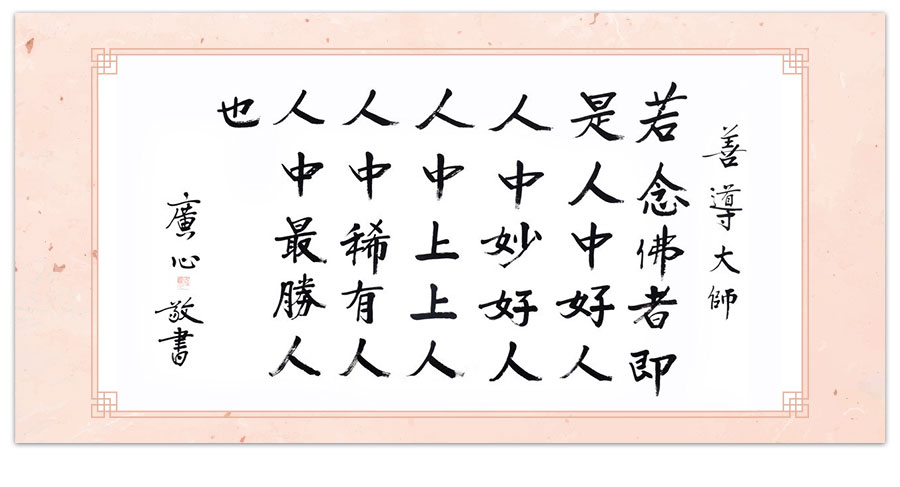 善導大師
若念佛者即
是人中好人
人中妙好人
人中上上人
人中稀有人
人中最勝人
也
廣心
敬書